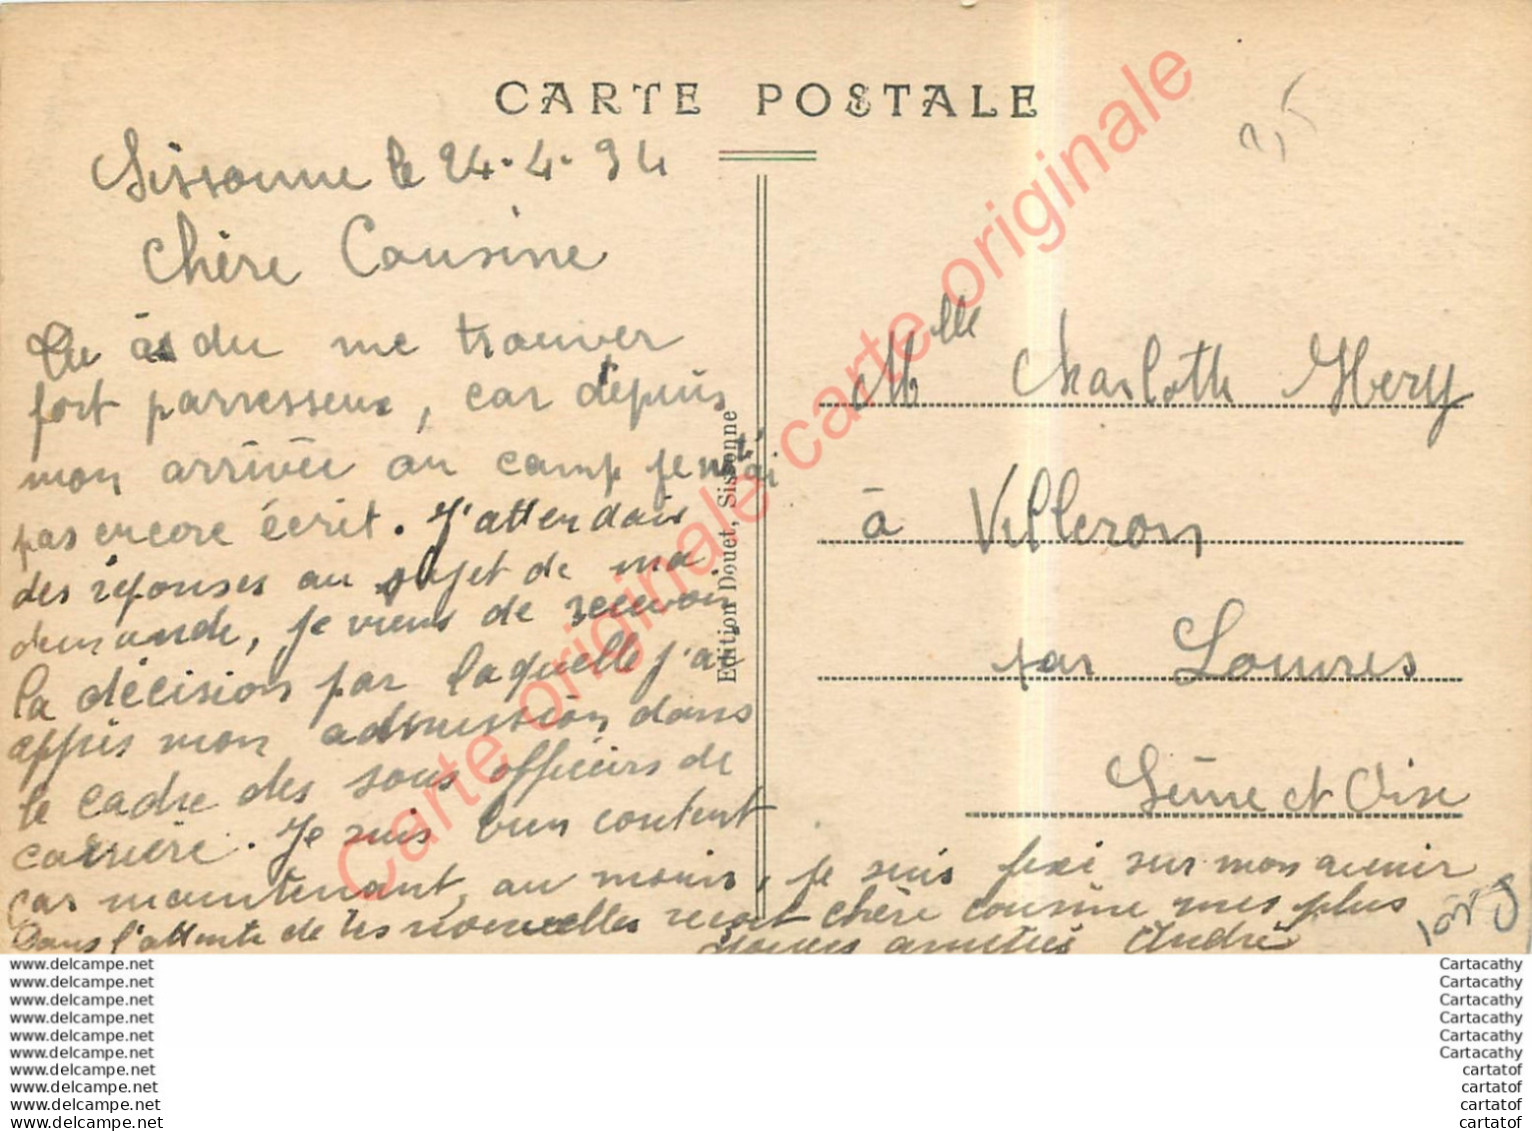 CARTE POSTALE
Sissonne le 24.4.34
Chère Cousine
Tu as du me trouver
fort parresseux, car depuis
mon arrivée au camp je ne t'ai
pas encore écrit. J'attendais
des réponses au sujet de ma
demande, je viens de recevoir
la décision par laquelle j'ai
appris mon admission dans
le cadre des sous officiers de
carrière. Je suis bien content
car maintenant, au moins, je suis fixé sur mon avenir
Dans l'attente de tes nouvelles reçoit chère cousine mes plus
amitiés André
Edition Douet, Sissonne
Mlle Charlotte Hery
à Villeron
par Louvres
Seine et Oise
Carte originale carte originale
www.delcampe.net
www.delcampe.net
www.delcampe.net
www.delcampe.net
www.delcampe.net
www.delcampe.net
www.delcampe.net
www.delcampe.net
www.delcampe.net
www.delcampe.net
Cartacathy
Cartacathy
Cartacathy
Cartacathy
Cartacathy
Cartacathy
cartatof
cartatof
cartatof
cartatof